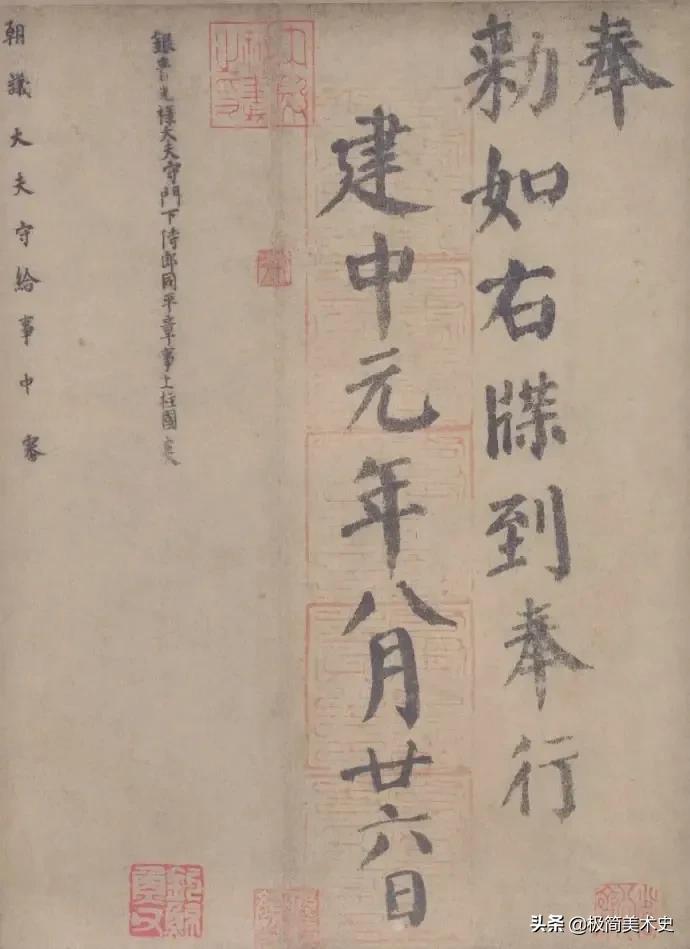 奉
勑如右牒到奉行
建中元年八月廿六日
銀青光祿大夫守門下侍郎同平章事上柱國炎
朝議大夫守給事中審
头条 @极简美术史